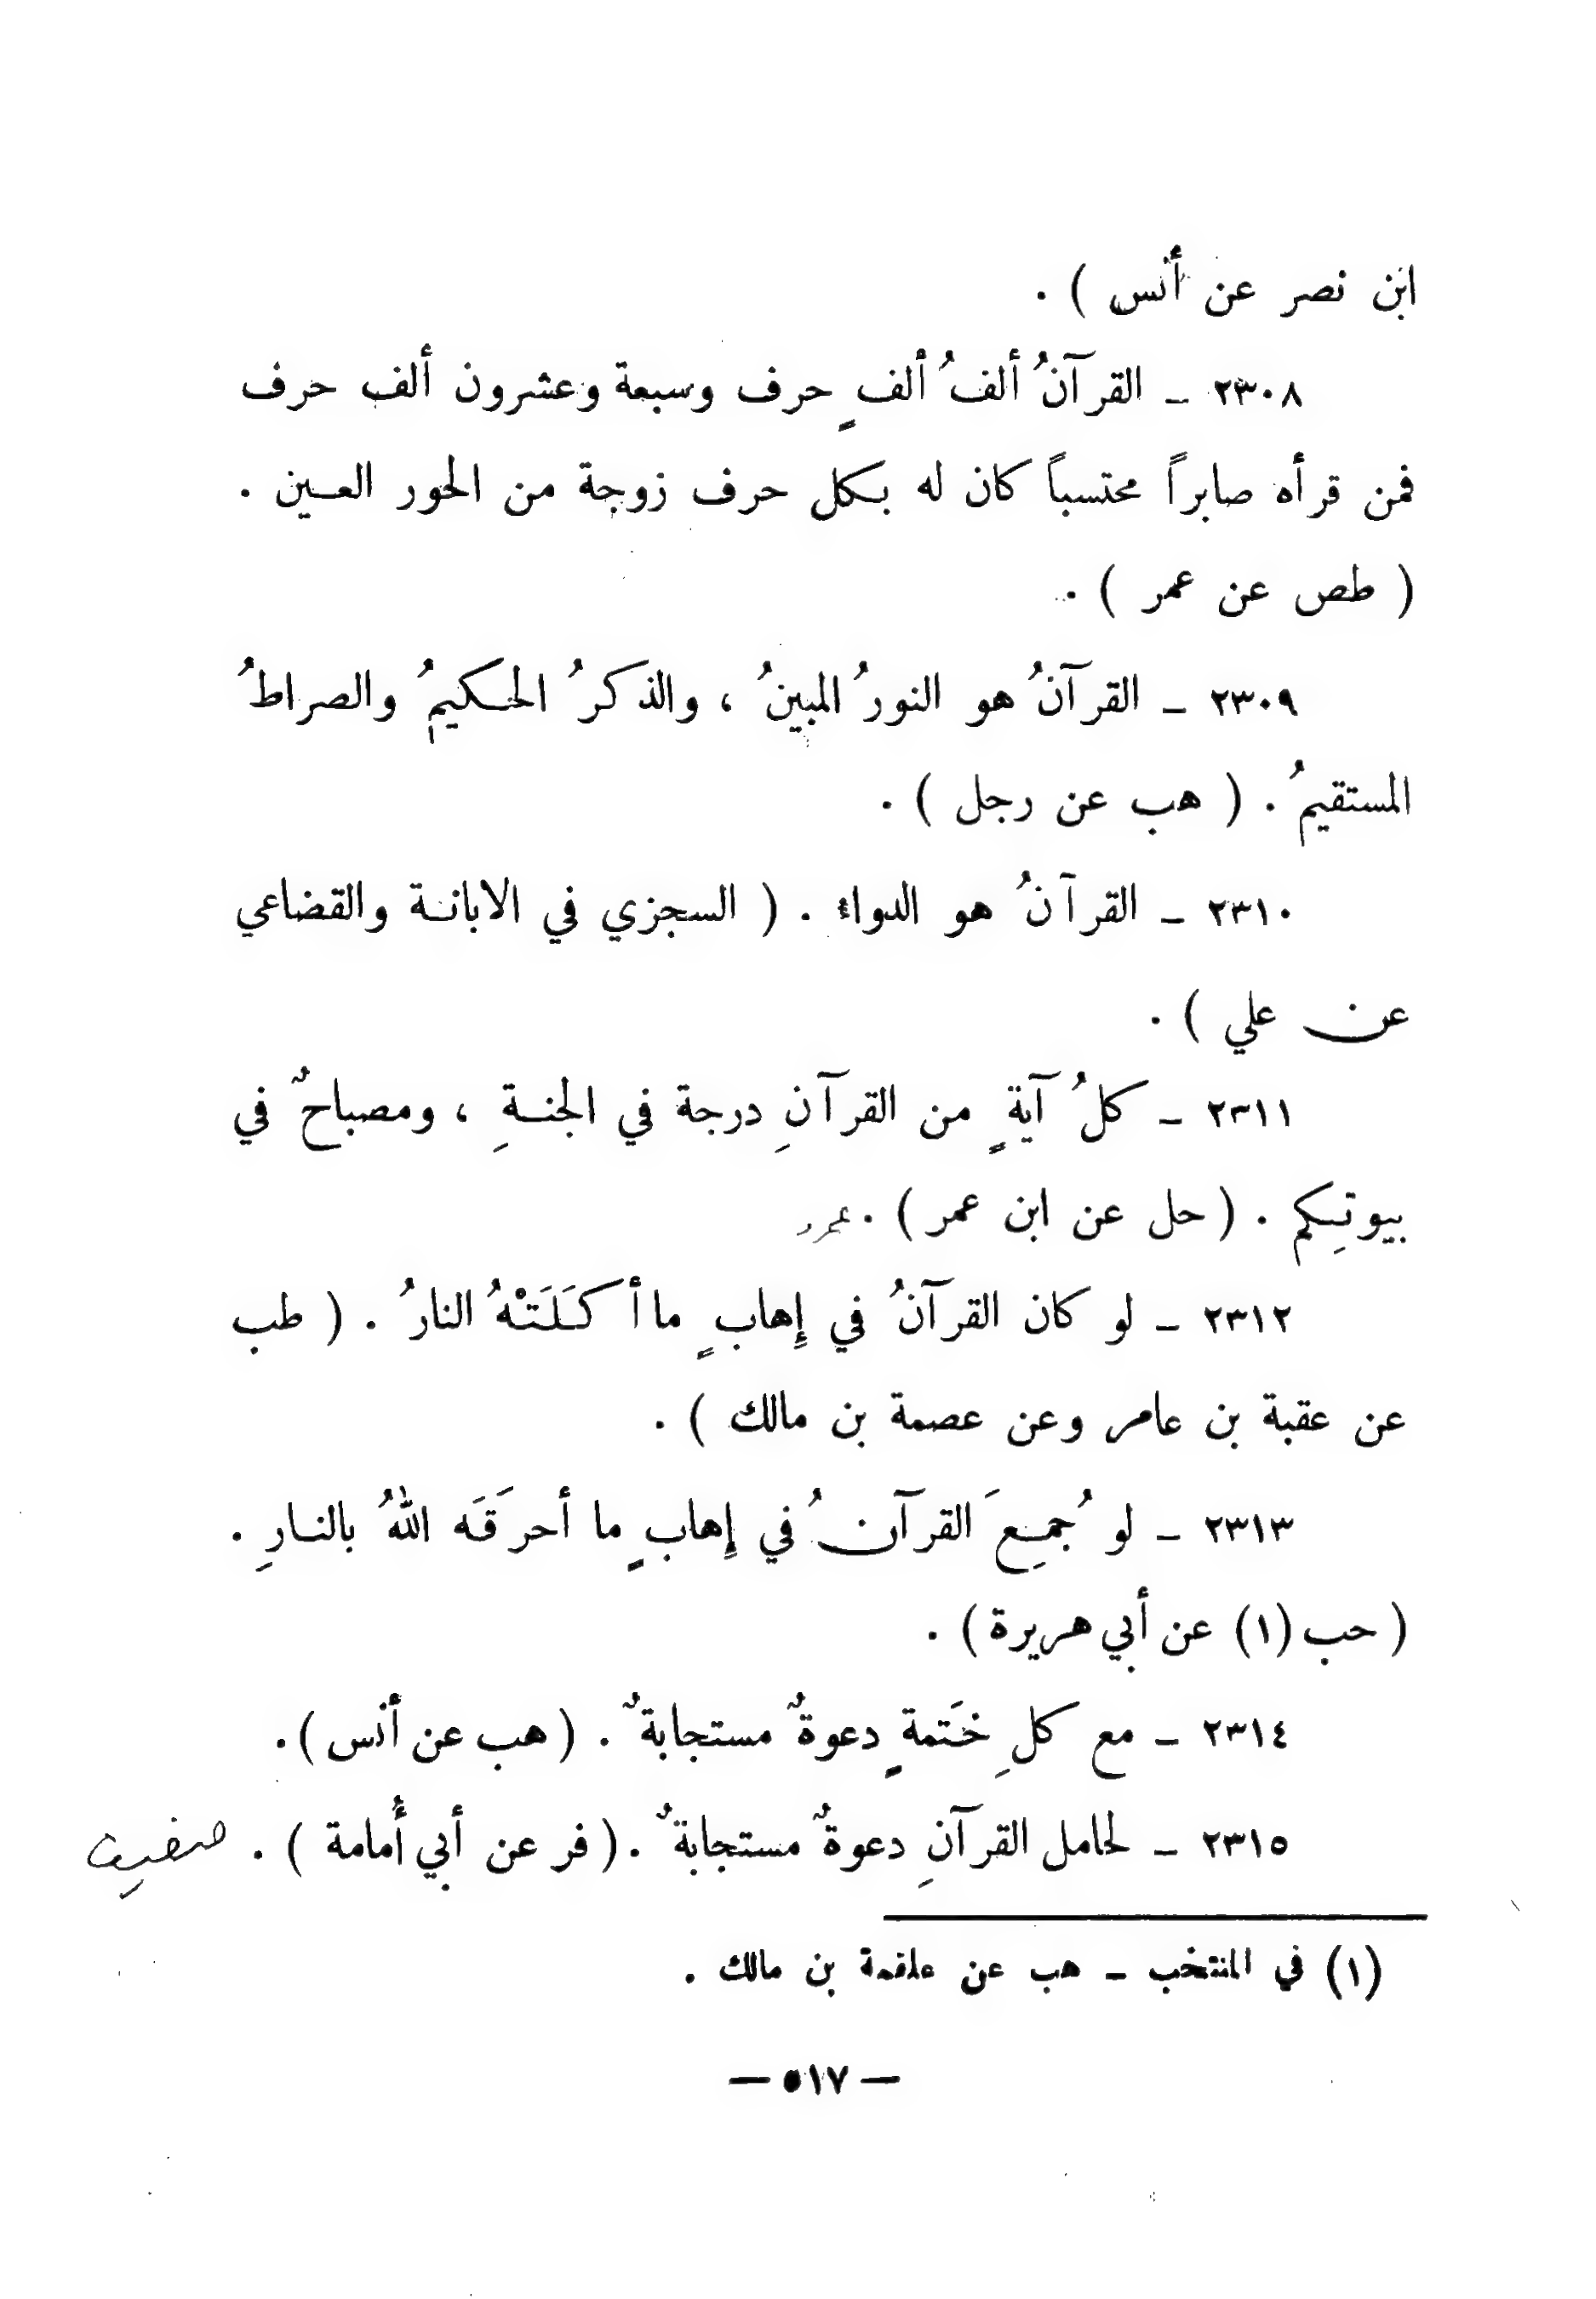 ابن نصر عن أنس ) .
٢٣٠٨ ـ القرآنُ ألفُ ألفٍ حرف وسبعة وعشرون ألف حرف
فمن قرأه صابراً محتسباً كان له بكل حرف زوجة من الحور العين .
( طص عن عمر ) .
٢٣٠٩ ـ القرآنُ هو النورُ المبينُ ، والذكرُ الحكيمُ والصراطُ
المستقيمُ . ( هب عن رجل ) .
٢٣١٠ ـ القرآنُ هو الدواء . ( السجزي في الابانة والقضاعي
عن علي ) .
٢٣١١ ـ كلُ آيةٍ من القرآنِ درجة في الجنةِ ، ومصباحٌ في
بيوتِكم . ( حل عن ابن عمر ) .
٢٣١٢ ـ لو كان القرآنُ في إِهابٍ ما أكَلَتْهُ النارُ . ( طب
عن عقبة بن عامر وعن عصمة بن مالك ) .
٢٣١٣ ـ لو جُمِعَ القرآنُ في إِهابٍ ما أحرَقَه اللهُ بالنارِ .
( حب (١) عن أبي هريرة ) .
٢٣١٤ ـ مع كلِ خَتمةٍ دعوةٌ مستجابةٌ . ( هب عن أنس ) .
٢٣١٥ ـ لحامل القرآنِ دعوةٌ مستجابةٌ . ( فر عن أبي أُمامة ) .
(١) في المنتخب ـ هب عن علقمة بن مالك .
— ٥١٧ —